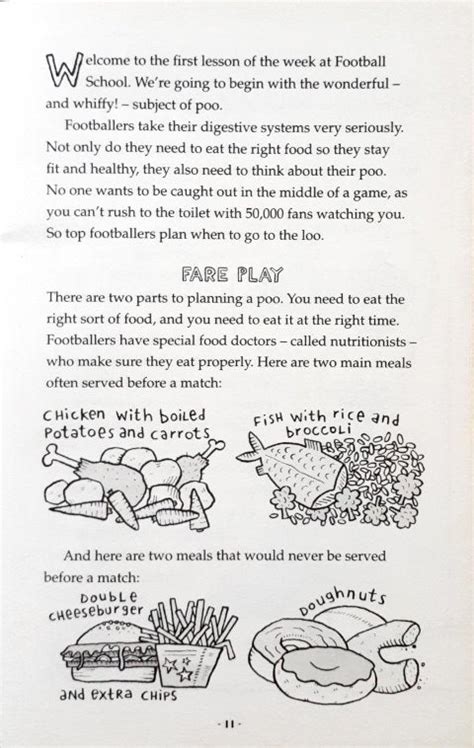 Welcome to the first lesson of the week at Football
School. We're going to begin with the wonderful –
and whiffy! – subject of poo.
Footballers take their digestive systems very seriously.
Not only do they need to eat the right food so they stay
fit and healthy, they also need to think about their poo.
No one wants to be caught out in the middle of a game, as
you can't rush to the toilet with 50,000 fans watching you.
So top footballers plan when to go to the loo.
FARE PLAY
There are two parts to planning a poo. You need to eat the
right sort of food, and you need to eat it at the right time.
Footballers have special food doctors – called nutritionists –
who make sure they eat properly. Here are two main meals
often served before a match:
Chicken with boiled
Potatoes and carrots
Fish with rice and
broccoli
And here are two meals that would never be served
before a match:
Double
cheeseburger
and extra chips
Doughnuts
- 11 -